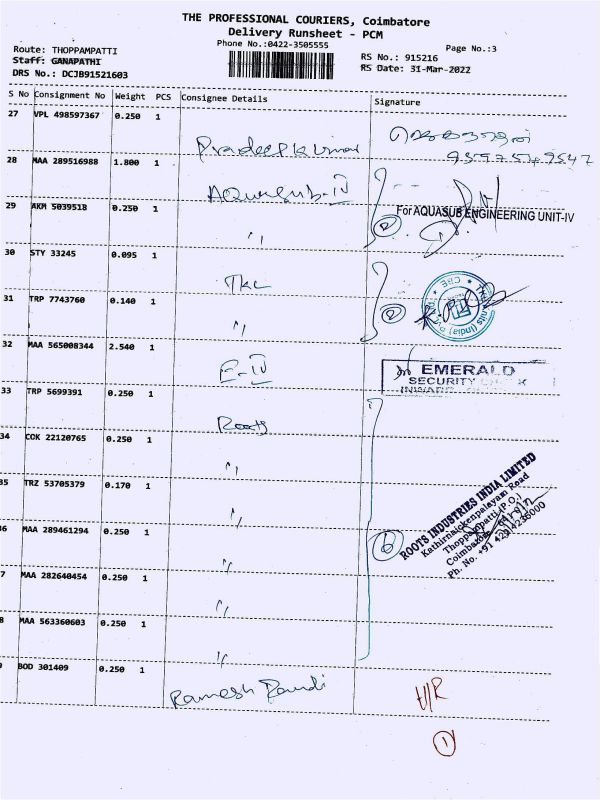 THE PROFESSIONAL COURIERS, Coimbatore
Delivery Runsheet - PCM
Phone No.:0422-3505555
Page No.:3
Route: THOPPAMPATTI
Staff: GANAPATHI
DRS No.: DCJB91521603
RS No.: 915216
RS Date: 31-Mar-2022
S No Consignment No Weight PCS Consignee Details Signature
27 VPL 498597367 0.250 1
Pradeepkumar
28 MAA 289516988 1.800 1
Aquasub-IV
29 AKM 5039518 0.250 1
For AQUASUB ENGINEERING UNIT-IV
2
〃
30 STY 33245 0.095 1
TKL
31 TRP 7743760 0.140 1
2
〃
32 MAA 565008344 2.540 1
E-IV
EMERALD
SECURITY
33 TRP 5699391 0.250 1
Roots
34 COK 22120765 0.250 1
〃
35 TRZ 53705379 0.170 1
〃
6 MAA 289461294 0.250 1
〃
6
ROOTS INDUSTRIES INDIA LIMITED
Kathirnaickenpalayam Road
Thoppampatti (P.O.)
Coimbatore
Ph. No. +91 422 4235000
7 MAA 282640454 0.250 1
〃
8 MAA 563360603 0.250 1
〃
BOD 301409 0.250 1
Ramesh Pandi
U/R
1